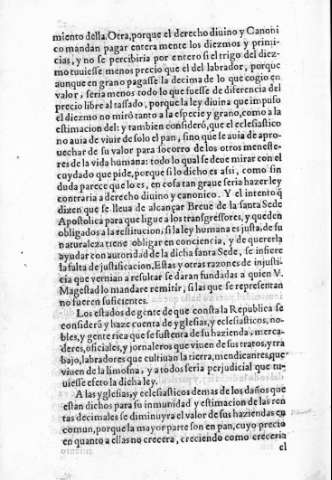 miento della. Otra, porque el derecho diuino y Canoni
co mandan pagar entera mente los diezmos y primi-
cias, y no se percibiria por entero si el trigo del diez-
mo tuuiesse menos precio que el del labrador, porque
aunque en grano pagasse la decima de lo que cogio en
valor, seria menos todo lo que fuesse de diferencia del
precio libre al tassado, porque la ley diuina que impuso
el diezmo no mirò tanto a la especie y grano, como a la
estimacion del: y tambien considerò, que el eclesiastico
no auia de viuir de solo el pan, sino que le auia de apro-
uechar de su valor para socorro de los otros meneste-
res de la vida humana: todo lo qual se deue mirar con el
cuydado que pide, porque si lo dicho es assi, como sin
duda parece que lo es, en cosa tan graue seria hazer ley
contraria a derecho diuino y canonico. Y el intento q̃
dizen que se lleua de alcançar Breue de la santa Sede
Apostolica para que ligue a los transgressores, y queden
obligados a la restitucion, si la ley humana es justa, de su
naturaleza tiene obligar en conciencia, y de quererla
ayudar con autoridad de la dicha santa Sede, se infiere
la falta de justificacion. Estas y otras razones de injusti-
cia que vernian a resultar se daran fundadas a quien V.
Magestad lo mandare remitir, si las que se representan
no fueren suficientes.
Los estados de gente de que consta la Republica se
considerã y haze cuenta de yglesias, y eclesiasticos, no-
bles, y gente rica que se sustenta de su hazienda, merca-
deres, oficiales, y jornaleros que viuen de sus tratos, y tra
bajo, labradores que cultiuan la tierra, mendicantes, que
viuen de la limosna, y a todos seria perjudicial que tu-
uiesse efeto la dicha ley.
A las yglesias, y eclesiasticos demas de los daños que
estan dichos para su inmunidad y estimacion de las ren
tas decimales se diminuyra el valor de sus haziendas en
comun, porque la mayor parte son en pan, cuyo precio
en quanto a ellas no crecera, creciendo como creceria
el